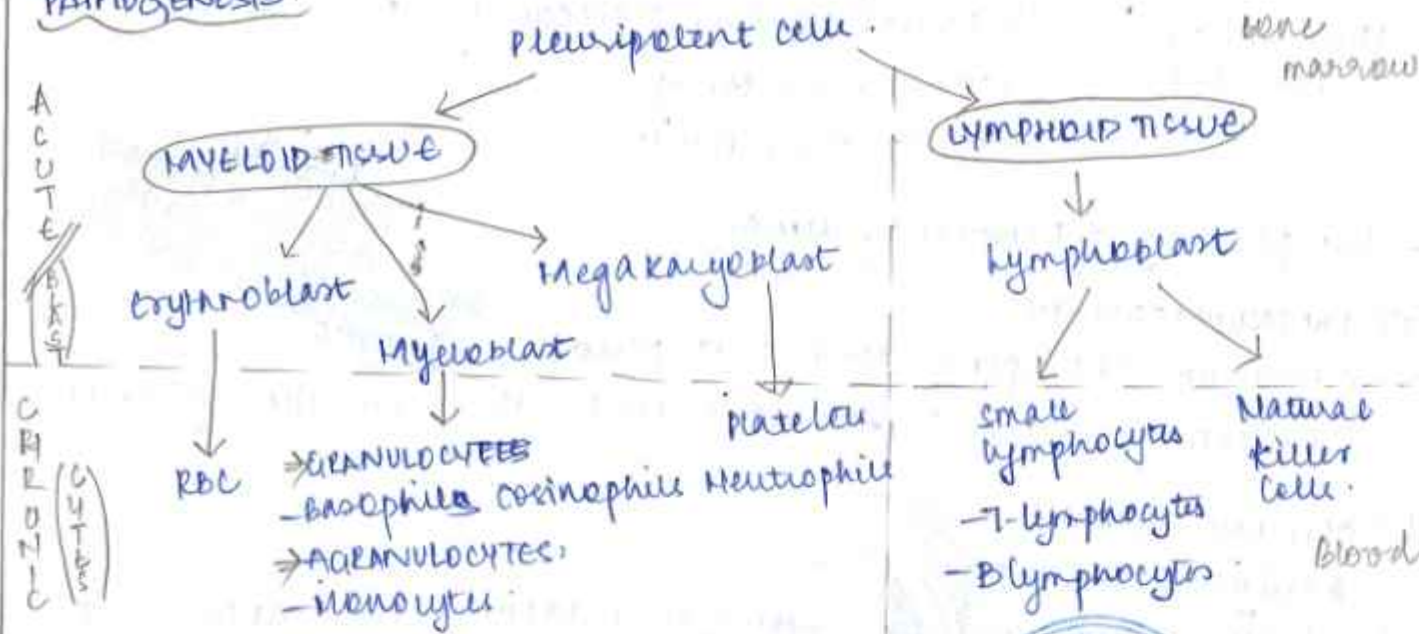 PATHOGENESIS:
Pleuripotent cells.
bone
marrow
ACUTE
(BLAST)
MYELOID TISSUE
LYMPHOID TISSUE
Erythroblast
Myeloblast
Megakaryoblast
Lymphoblast
CHRONIC
(CYTES)
RBC
⇒GRANULOCYTES
-Basophils Eosinophils Neutrophils
⇒AGRANULOCYTES:
-Monocytes.
Platelets
small
lymphocytes
-T-lymphocytes
-B lymphocytes.
Natural
killer
cells.
Blood